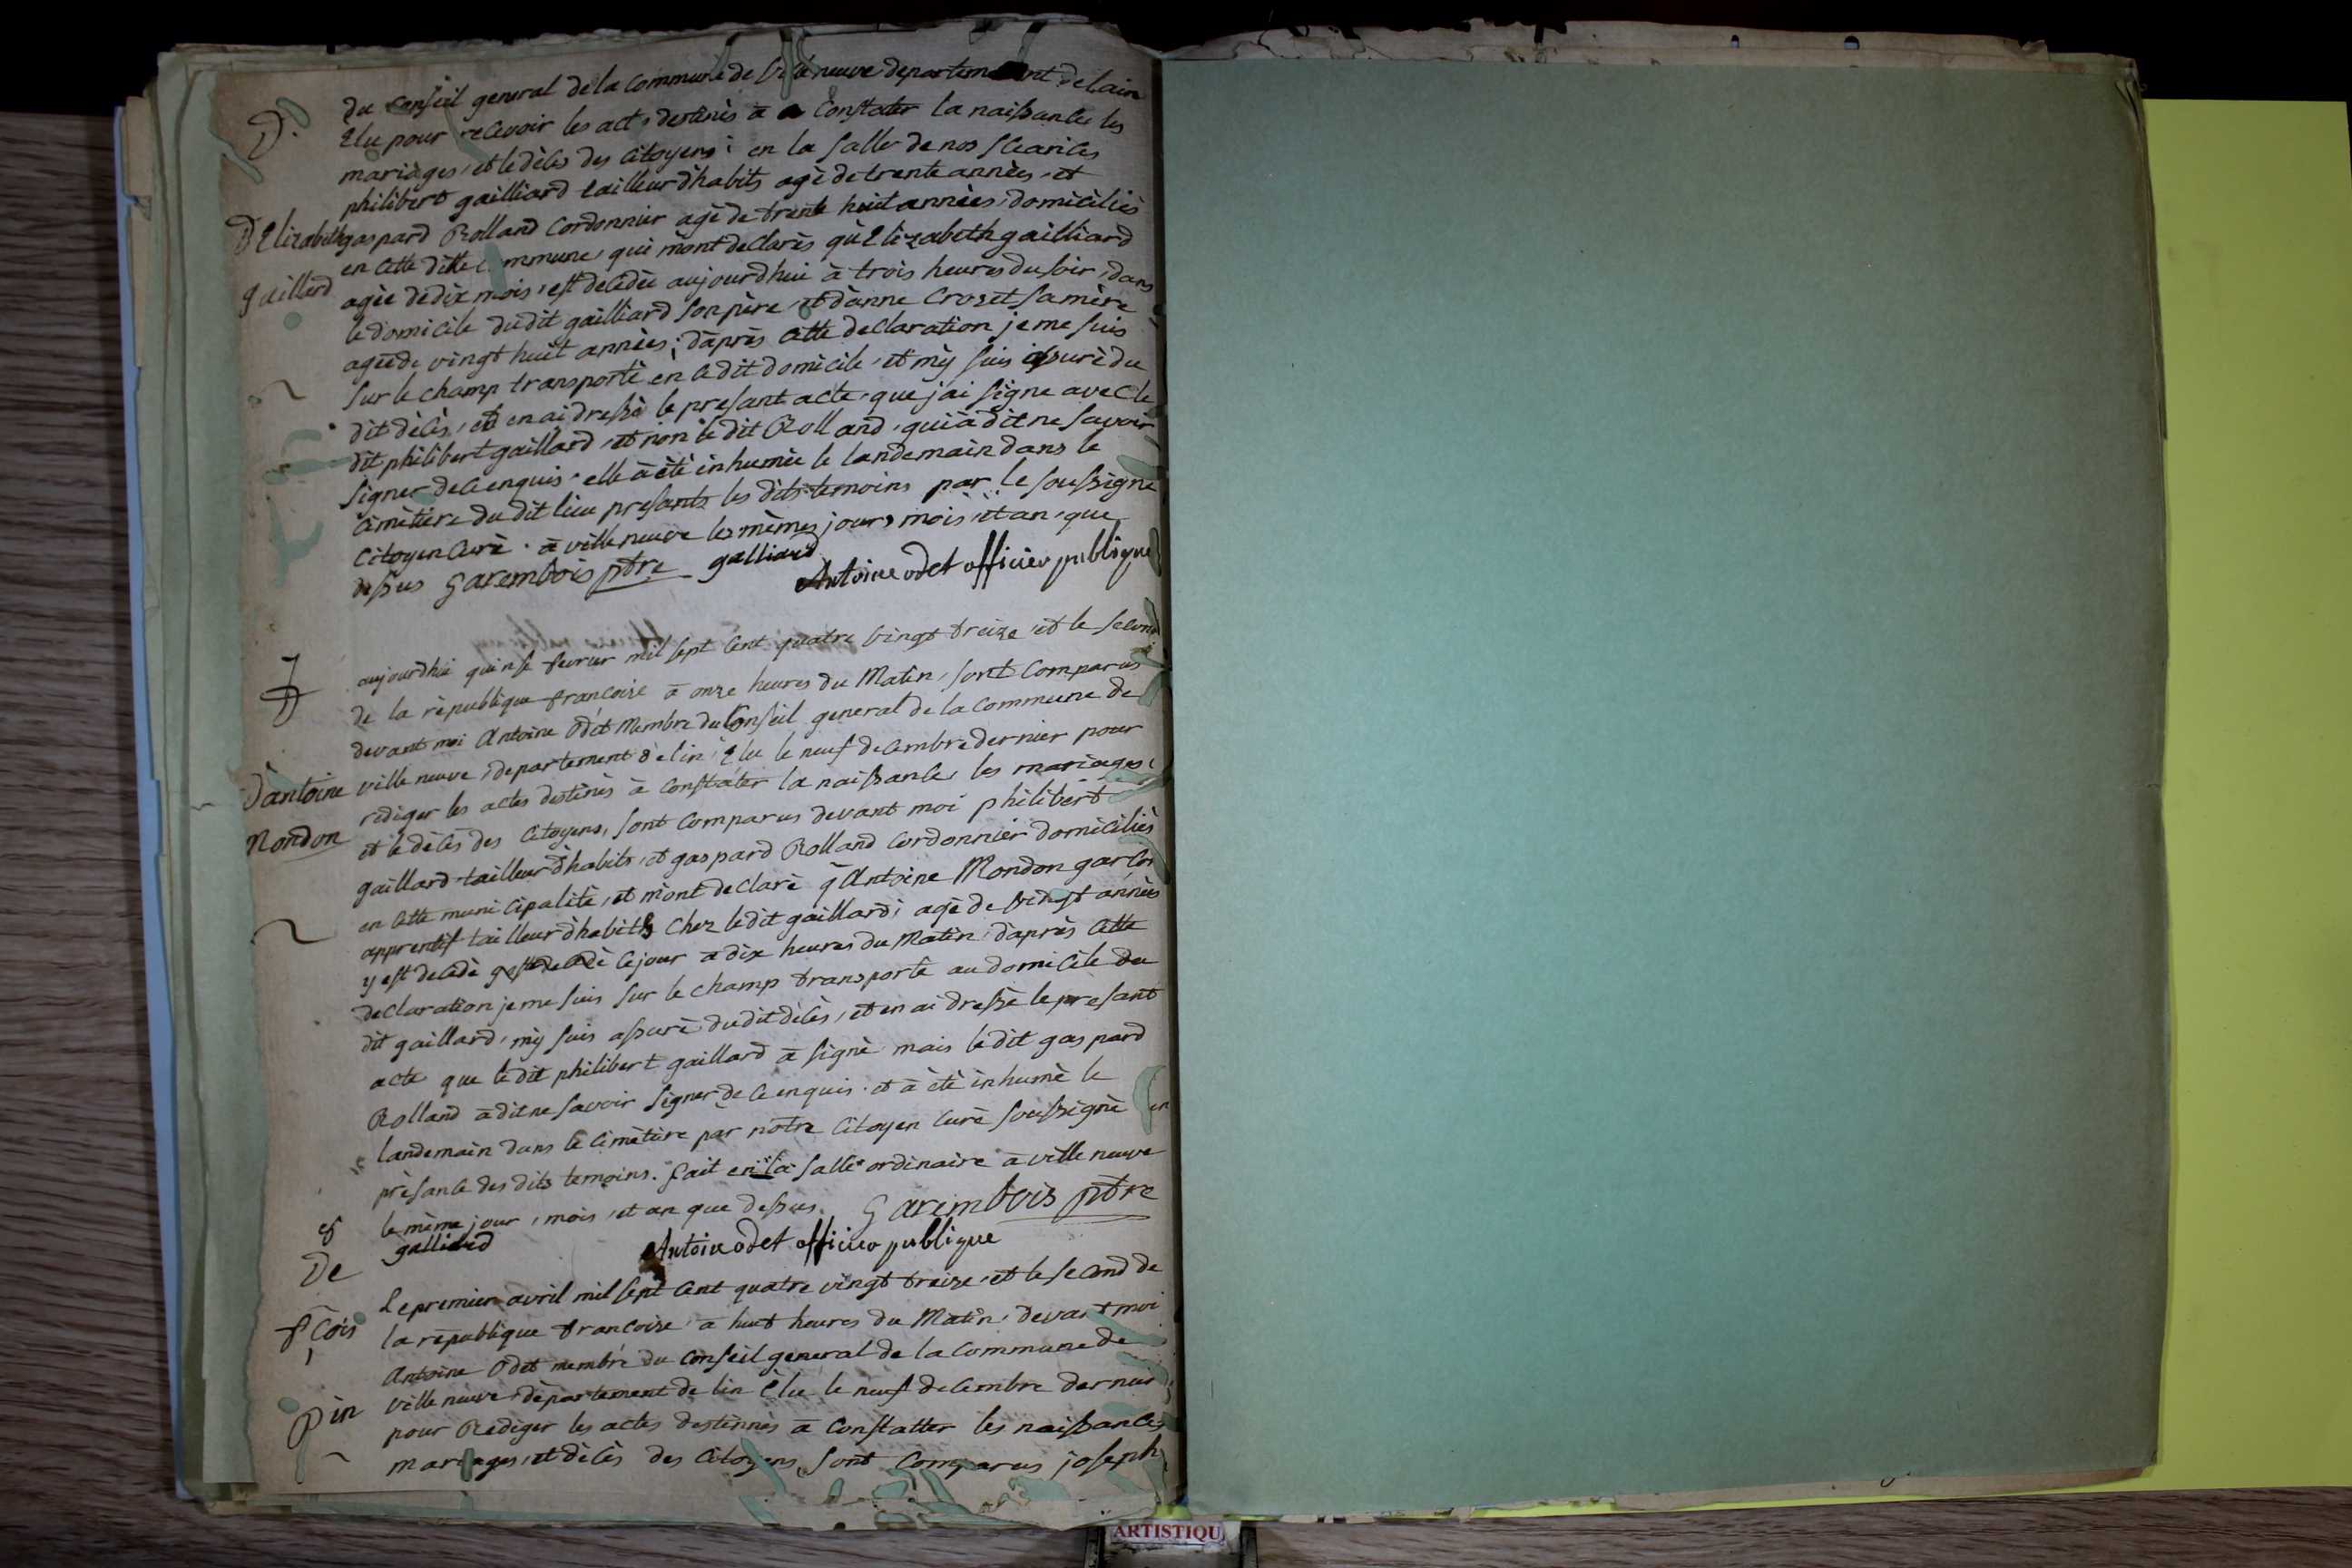 du conseil general de la commune de Villeneuve departement de lain
D.
Elu pour recevoir les acts destinès à constater la naissance les
mariàges, et le dècès des citoyens: en la salle de nos sceances
philibert gailliard tailleur d'habits agè de trente annèes, et
D'Elizabeth
gaspard Rolland cordonnier agè de trente huit annèes, domicilièes
en cette ditte commune, qui m'ont declarès qu'Elizabeth gailliard
guillard
agèe de dix mois, est decedèe aujourdhui à trois heures du soir, dans
le domicile du dit gailliard son père, et d'anne Crozet sa mère
agèe de vingt huit annèes; d'après cette declaration je me suis
sur le champ transportè en le dit domicile, et m'y suis assurè du
dit dècès, et en ai dressè le presant acte, que j'ai signe avec le
dit philibert gaillard, et non le dit Rolland, qui à dit ne savoir
signer de ce enquis. elle à ètè inhumèe le landemain dans le
cimètière du dit lieu presants les dits temoins par le soussigne
citoyen curè. à ville neuve les mèmes jours mois, et an, que
dessus Garembois ptre galliard
Antoine odet officier publique
aujourdhui quinse fevrier mil sept cent quatre vingt treize et le second
de la rèpublique francoise à onze heures du Matin, sont comparus
devant moi Antoine Odet Membre du Conseil general de la commune de
ville neuve, departement de lin, Elu le neuf decembre dernier pour
D'antoine
rèdiger les actes destinès à constater la naissance, les mariages,
Mondon
et le dècès des citoyens, sont comparus devant moi philibert
gaillard tailleur d'habits, et gaspard Rolland cordonnier domicilièes
en cette municipalitè, et m'ont declarè q' Antoine Mondon garcon
apprentif tailleur d'habits chez le dit gaillard, agè de vingt annèes
y est decedè y est decedè ce jour à dix heures du Matin, d'après cette
declaration je me suis sur le champ transportè au domicile du
dit gaillard, m'y suis assurè du dit dècès, et en ai dressè le presant
acte que le dit philibert gaillard à signè mais le dit gaspard
Rolland à dit ne savoir signer de ce enquis. et à ètè inhumè le
landemain dans le cimètière par nòtre citoyen curè soussignè en
prèsance des dits temoins. fait en la salle ordinaire à ville neuve
le mème jour, mois, et an que dessus. Garembois ptre
galliard
Antoine odet officier publique
De
Le premier avril mil sept cent quatre vingt treize, et le second de
fcois
la rèpublique francoise à huit heures du Matin, devant moi
Antoine Odet membre du conseil general de la commune de
pin
ville neuve, dèpartement de lin Elu le neuf decembre dernier
pour Rediger les actes destinnès à constatter les naissances
mariages, et dècès des citoyens, sont comparus joseph
ARTISTIQU